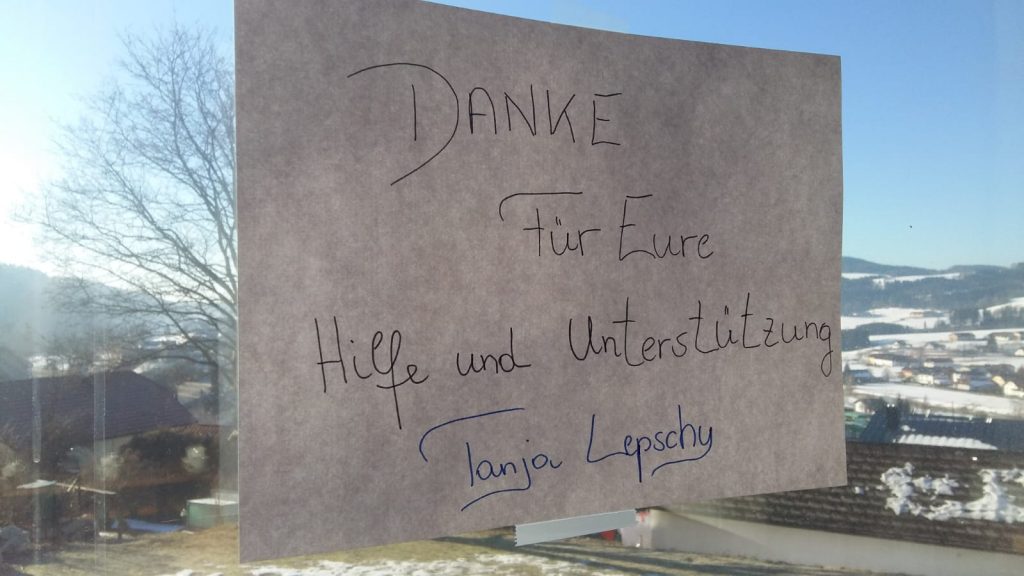 DANKE
Für Eure
Hilfe und Unterstützung
Tanja Lepschy